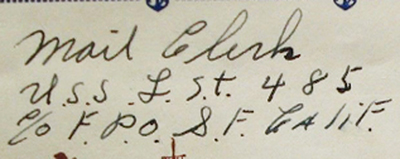 Mail Clerk
U.S.S. L.S.T. 485
c/o F.P.O. S.F. Calif.